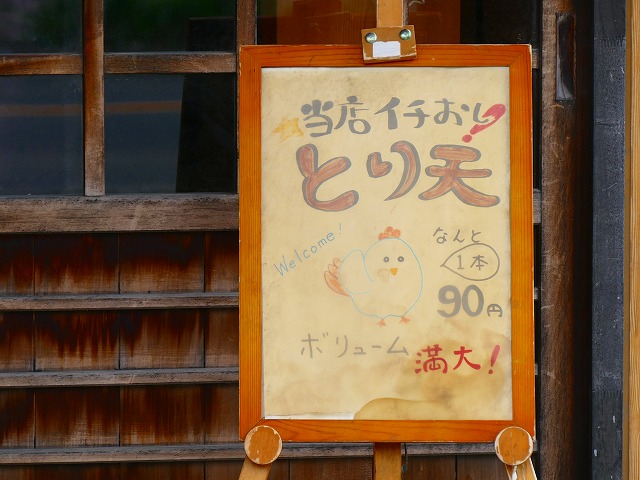 当店イチおし!
とり天
Welcome!
なんと
1本
90円
ボリューム
満大!